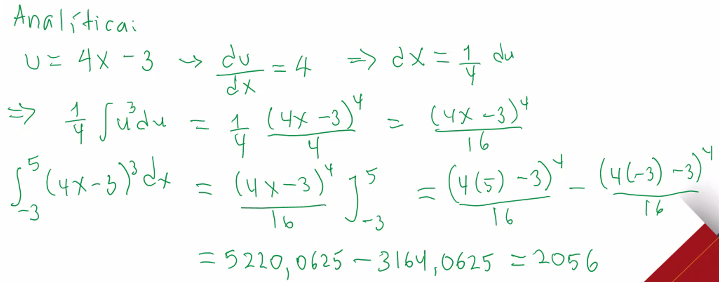 Analítica:
u = 4x - 3 → du/dx = 4 ⇒ dx = 1/4 du
⇒ 1/4 ∫u³du = 1/4 (4x - 3)⁴/4 = (4x - 3)⁴/16
∫₋₃⁵ (4x - 3)³ dx = (4x - 3)⁴/16 ]₋₃⁵ = (4(5) - 3)⁴/16 - (4(-3) - 3)⁴/16
= 5220,0625 - 3164,0625 = 2056